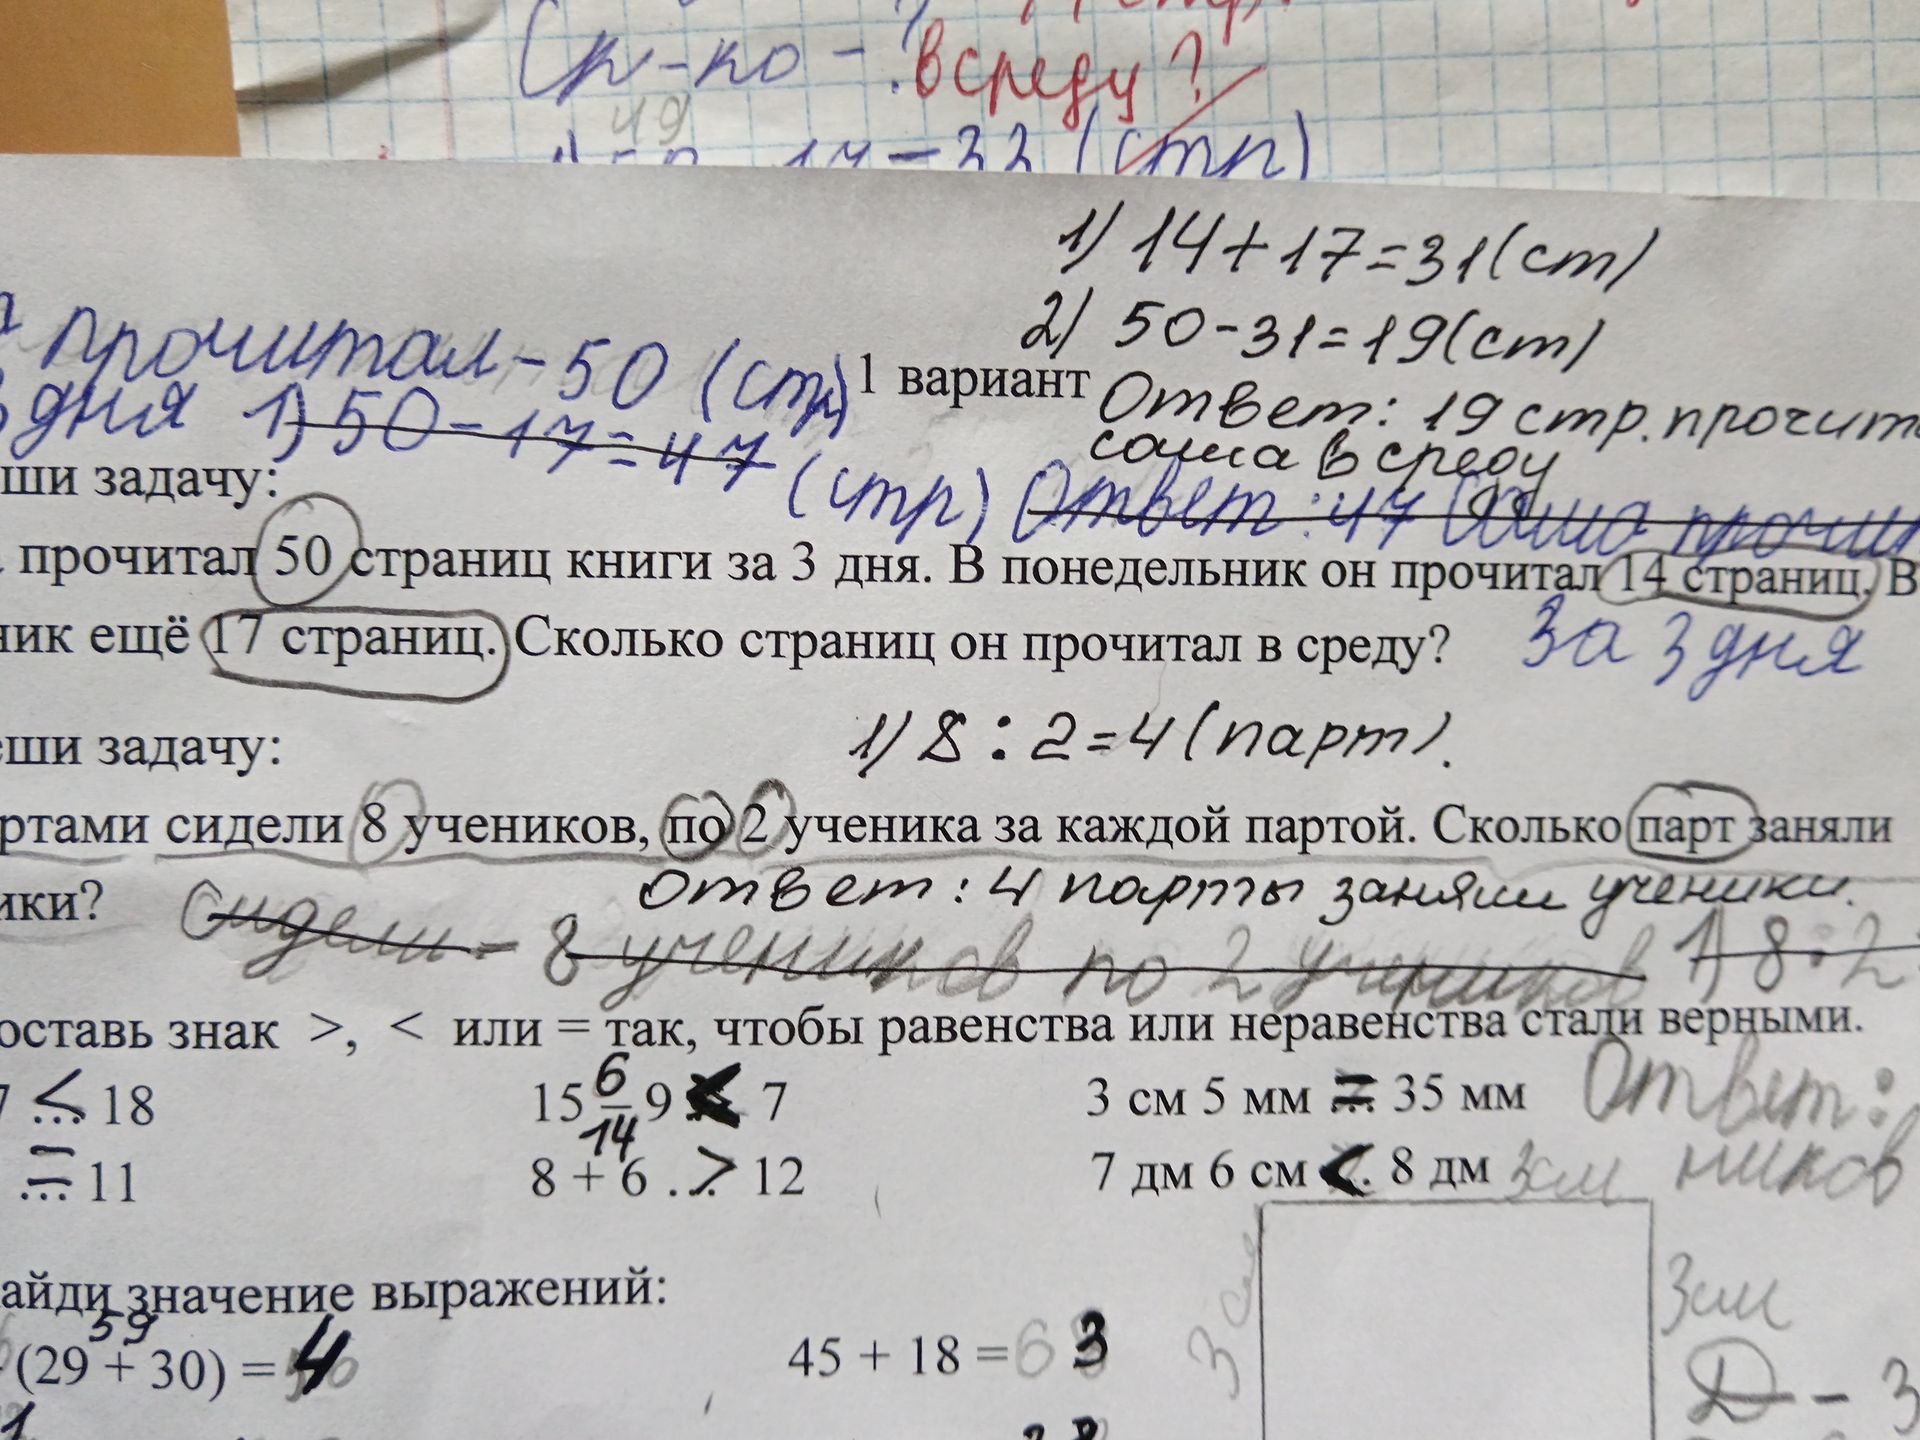 Ск-ко - ? в среду?
49
17 = 33 (стр)
1) 14+17=31(ст)
2) 50-31=19(ст)
прочитал - 50 (стр)
1 вариант
Ответ: 19 стр. прочит
саша в среду
3 дня 1) 50-17=47 (стр) Ответ: 47 Саша прочи
ши задачу:
прочитал 50 страниц книги за 3 дня. В понедельник он прочитал 14 страниц. В
ник ещё 17 страниц. Сколько страниц он прочитал в среду? За 3 дня
1) 8 : 2 = 4 (парт).
еши задачу:
ртами сидели 8 учеников, по 2 ученика за каждой партой. Сколько парт заняли
ики?
Ответ: 4 парты заняли ученики.
Сидели = 8 учеников по 2 учеников 1) 8 : 2
оставь знак >, < или = так, чтобы равенства или неравенства стали верными.
7 < 18
6
15 – 9 < 7
3 см 5 мм = 35 мм
Ответ:
= 11
14
8 + 6 > 12
7 дм 6 см < 8 дм
3см
ников
3 см
3см
айди значение выражений:
59
(29 + 30) = 4
45 + 18 = 63
D - 3
1
28